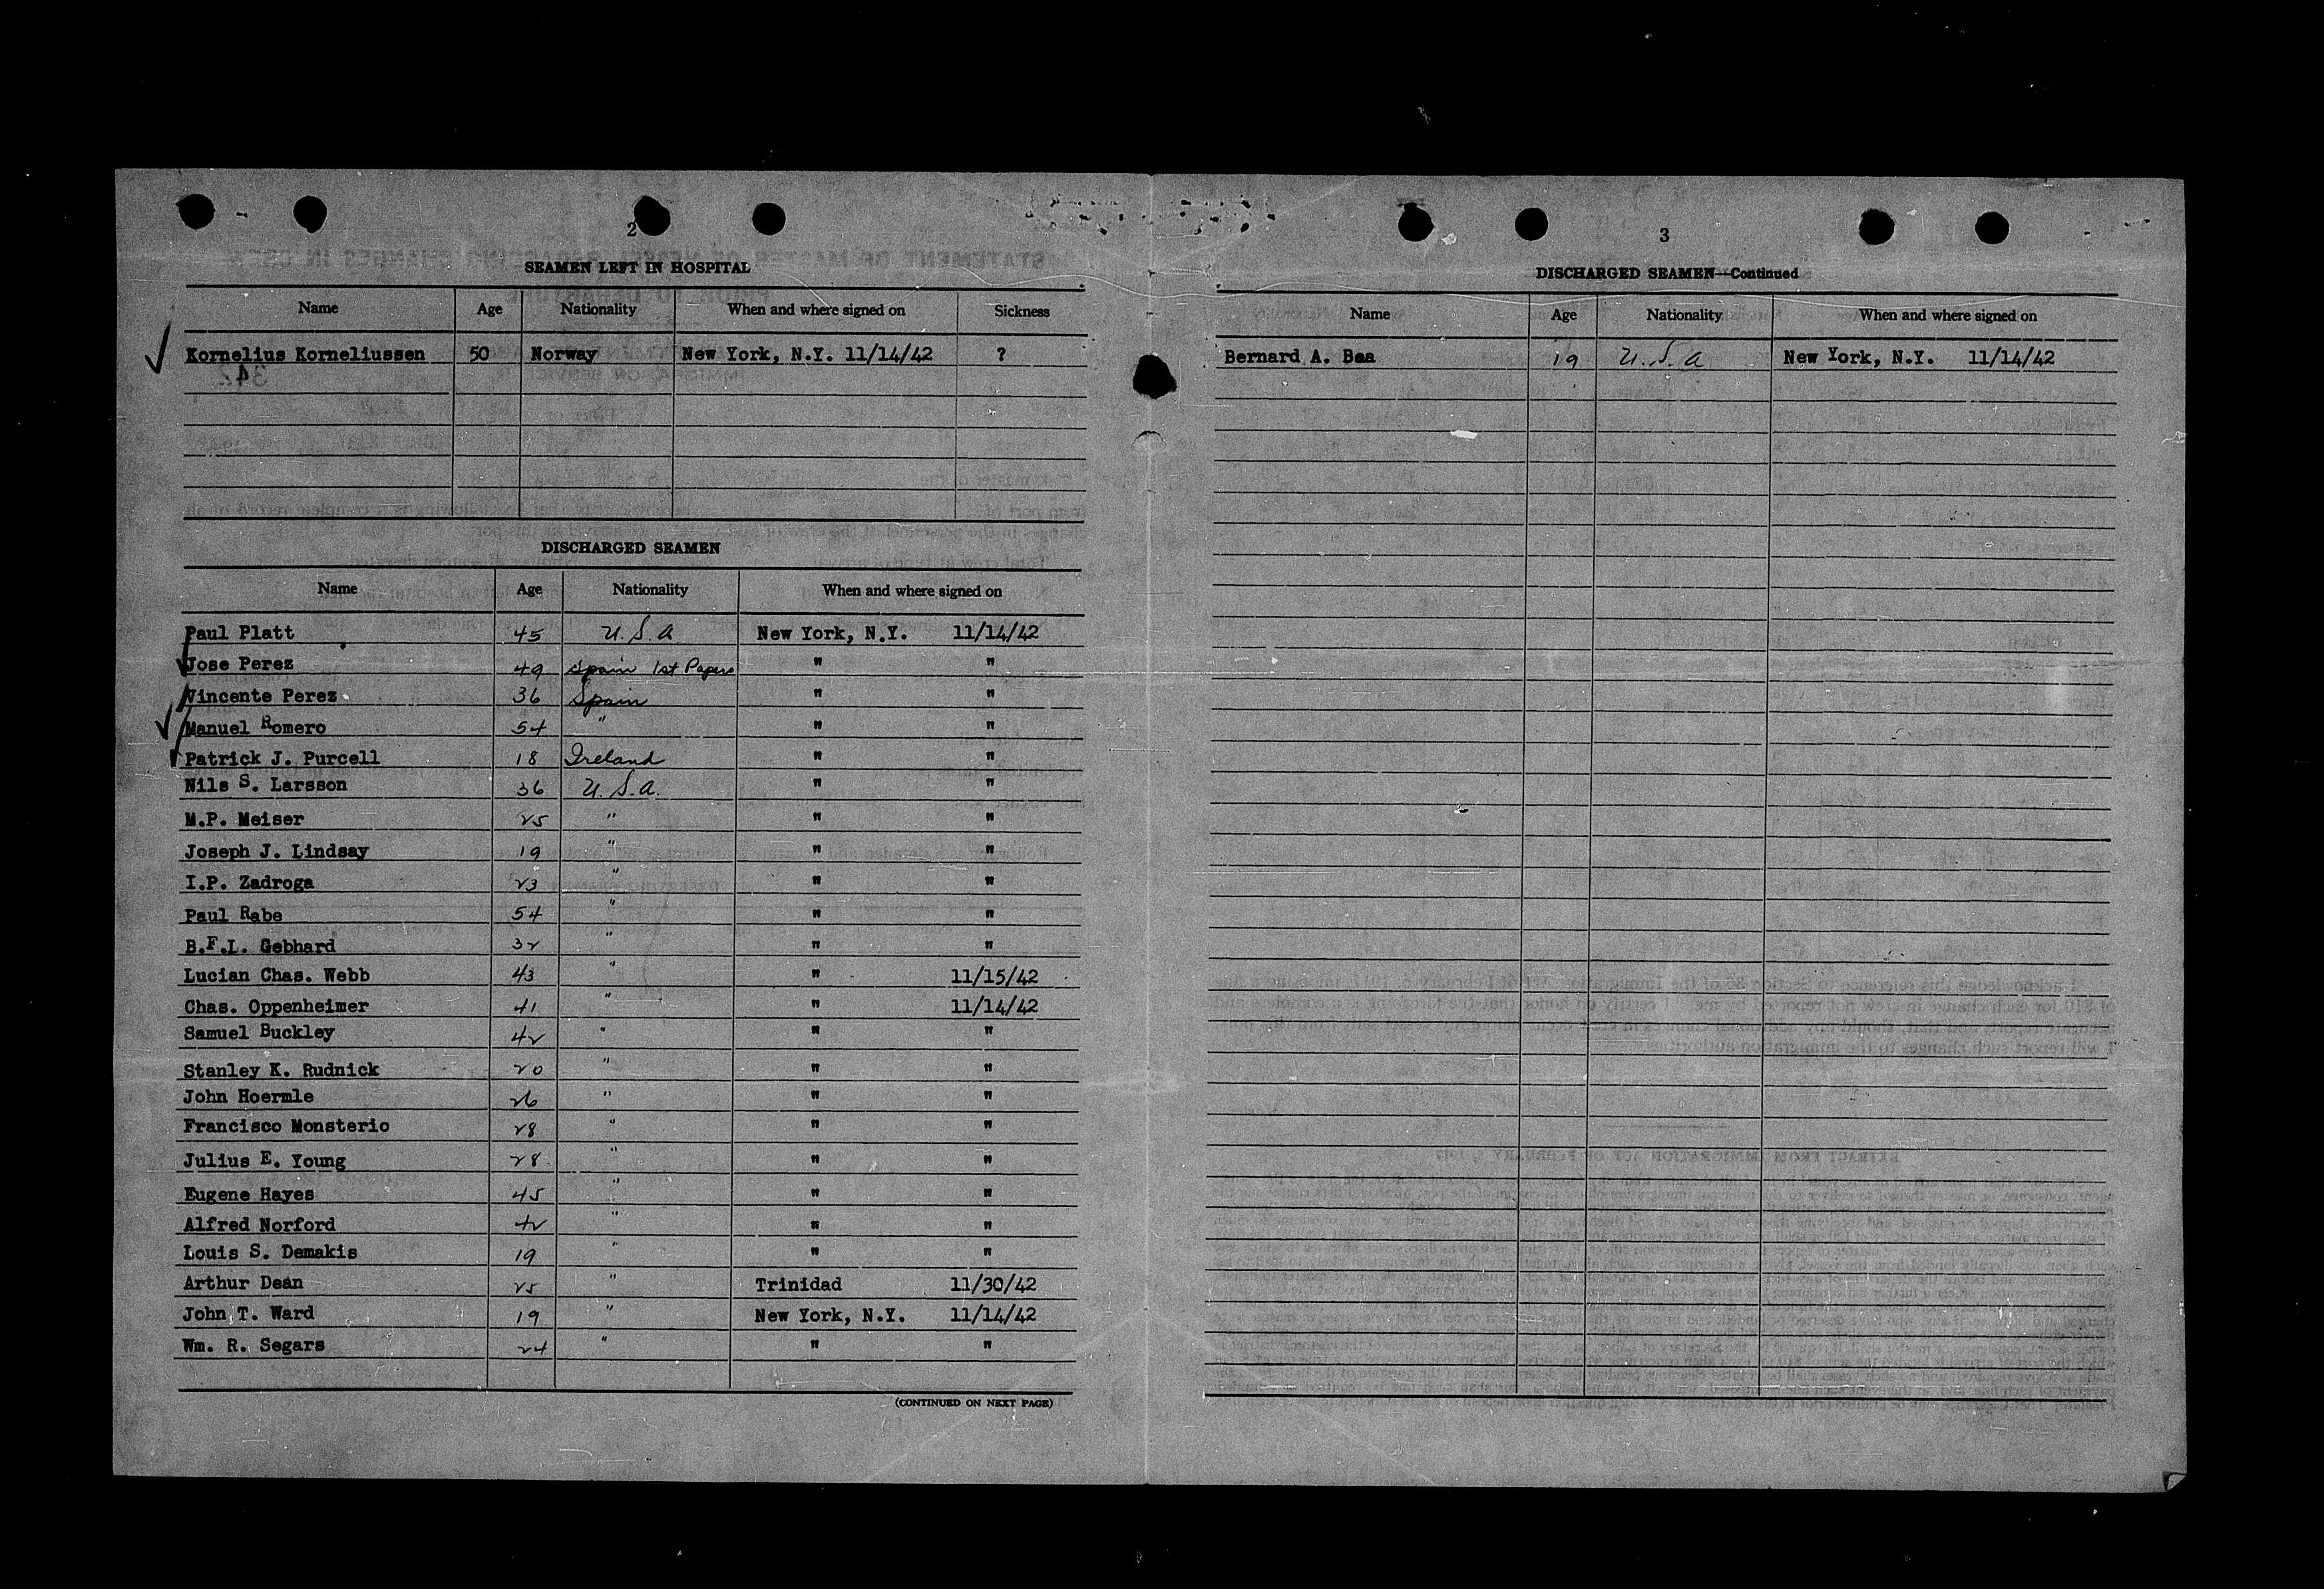 2
SEAMEN LEFT IN HOSPITAL
Name Age Nationality When and where signed on Sickness
Kornelius Korneliussen 50 Norway New York, N.Y. 11/14/42 ?
DISCHARGED SEAMEN
Name Age Nationality When and where signed on
Paul Platt 45 U.S.A New York, N.Y. 11/14/42
Jose Perez 49 Spain 1st Papers " "
Vincente Perez 36 Spain " "
Manuel Romero 54 " " "
Patrick J. Purcell 18 Ireland " "
Nils S. Larsson 36 U.S.A. " "
M.P. Meiser 25 " " "
Joseph J. Lindsay 19 " " "
I.P. Zadroga 23 " " "
Paul Rabe 54 " " "
B.F.L. Gebhard 32 " " "
Lucian Chas. Webb 43 " " 11/15/42
Chas. Oppenheimer 41 " " 11/14/42
Samuel Buckley 42 " " "
Stanley K. Rudnick 20 " " "
John Hoermle 26 " " "
Francisco Monsterio 28 " " "
Julius E. Young 28 " " "
Eugene Hayes 45 " " "
Alfred Norford 42 " " "
Louis S. Demakis 19 " " "
Arthur Dean 25 " Trinidad 11/30/42
John T. Ward 19 " New York, N.Y. 11/14/42
Wm. R. Segars 24 " " "
(CONTINUED ON NEXT PAGE)
3
DISCHARGED SEAMEN—Continued
Name Age Nationality When and where signed on
Bernard A. Baa 19 U.S.A New York, N.Y. 11/14/42